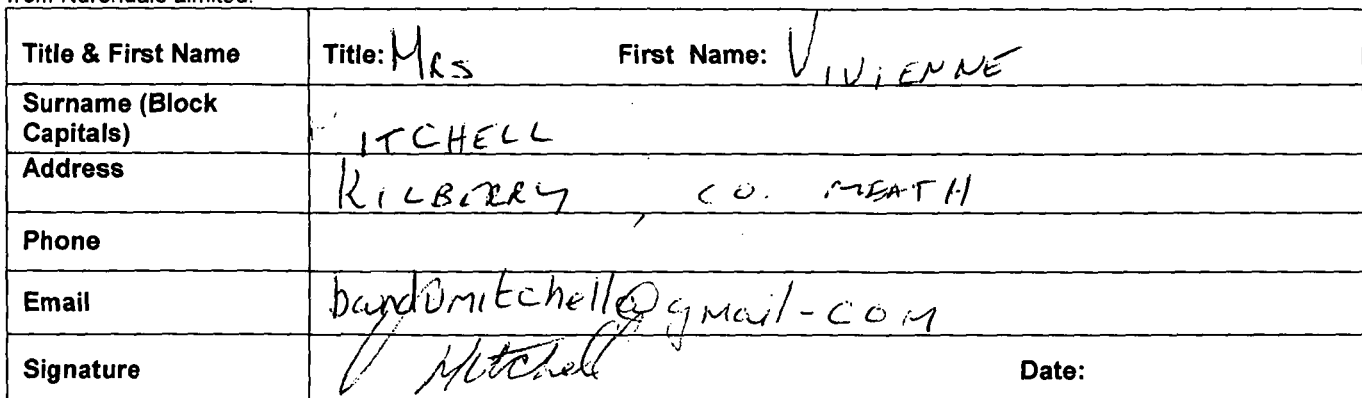 Title & First Name Title: Mrs First Name: VIVIENNE
Surname (Block Capitals) ITCHELL
Address KILBERRY, CO. MEATH
Phone
Email
Signature Mitchell Date: